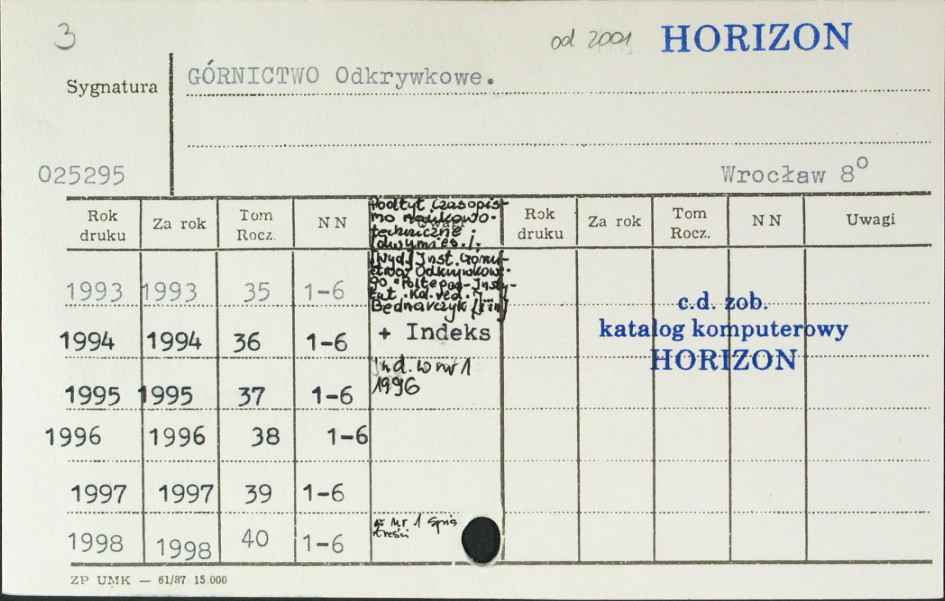 3
od 2001 HORIZON
Sygnatura
GÓRNICTWO Odkrywkowe.
025295
Wrocław 8°
Rok druku Za rok Tom Rocz. N N Uwagi Rok druku Za rok Tom Rocz. N N Uwagi
Podtyt. Czasopis-
mo naukowo-
techniczne
[dwumies.].
[Wyd.] Inst. Górni-
ctwa Odkrywkowe-
go "Poltegor-Insty-
tut". Kd. red. J.
Bednarczyk [i in.]
1993 1993 35 1-6
1994 1994 36 1-6 + Indeks
1995 1995 37 1-6 Ind. w nr 1
1996
1996 1996 38 1-6
1997 1997 39 1-6
1998 1998 40 1-6 Nr 1 Spis
treści
c.d. zob.
katalog komputerowy
HORIZON
ZP UMK — 61/87 15.000